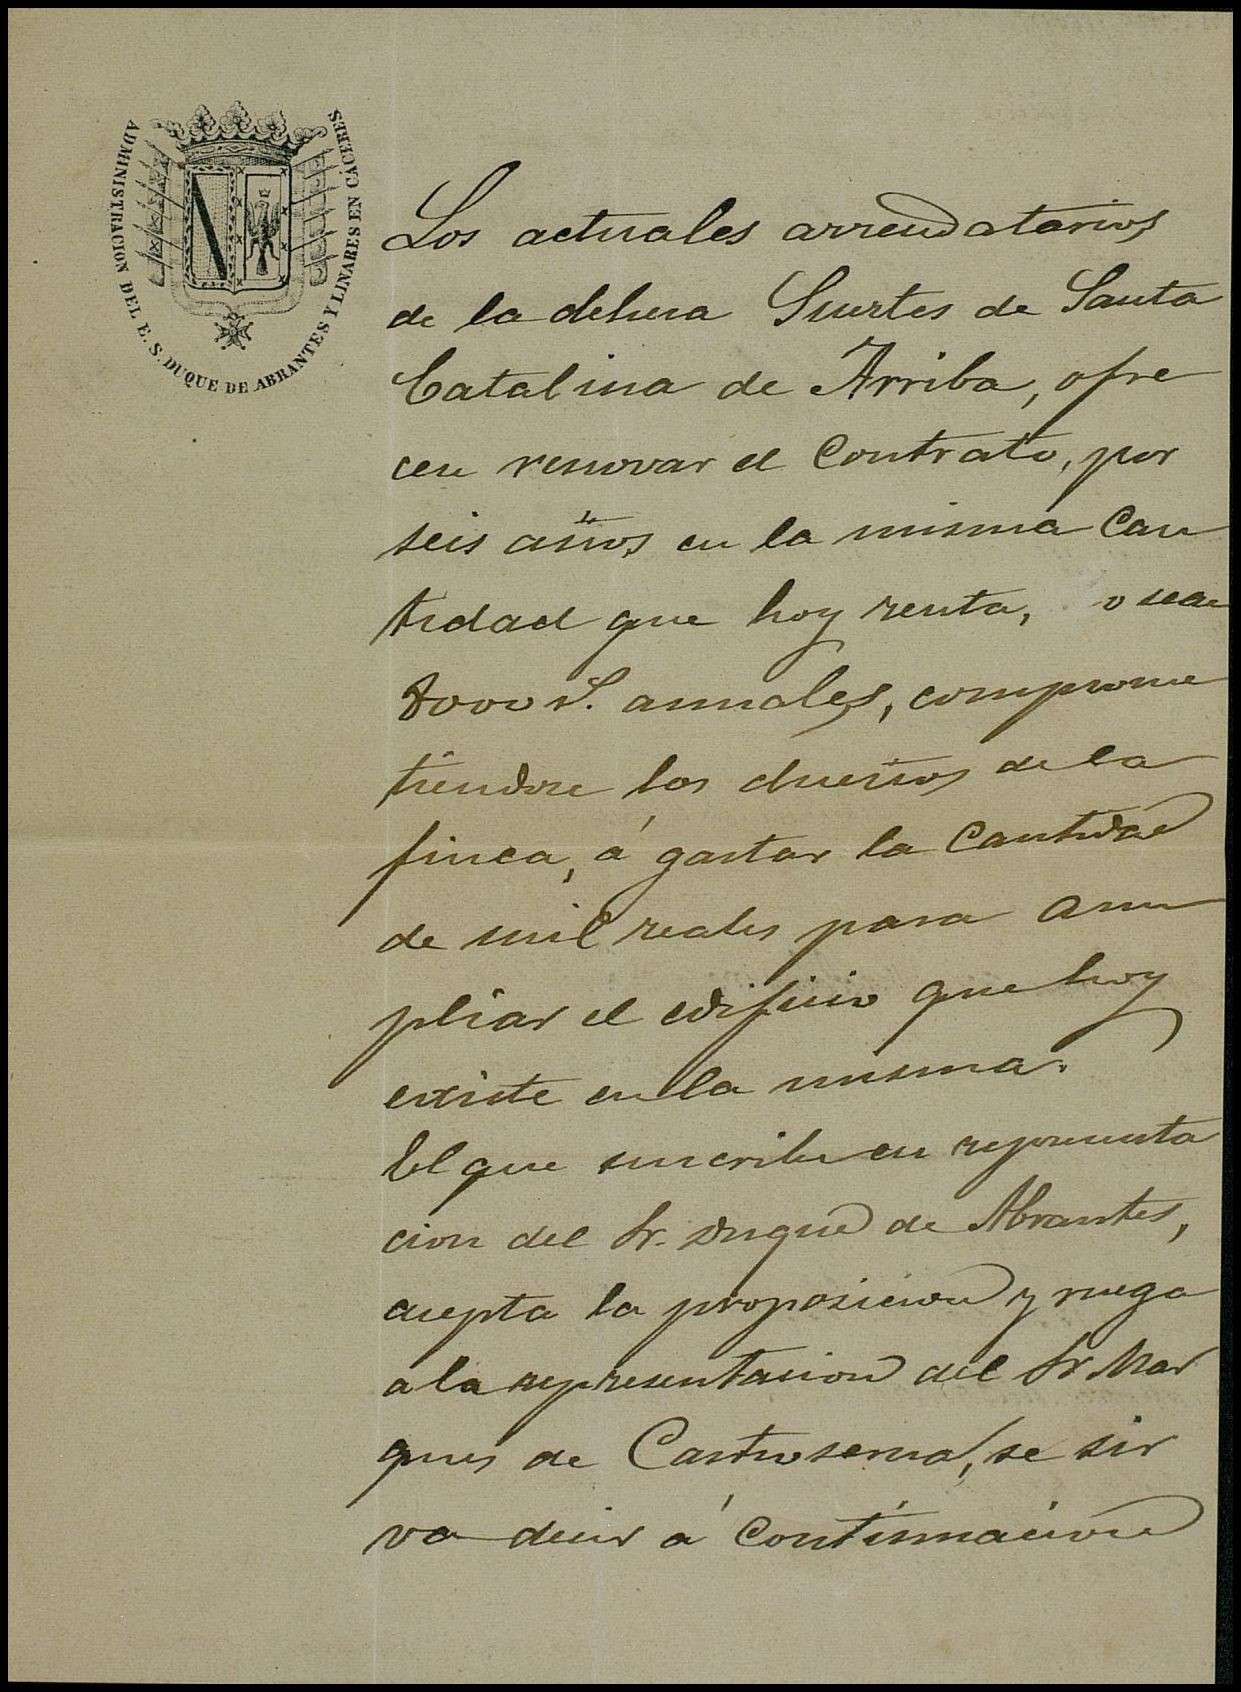 ADMINISTRACION DEL E. S. DUQUE DE ABRANTES Y LINARES EN CÁCERES
Los actuales arrendatarios
de la dehesa Suertes de Santa
Catalina de Arriba, ofre
cen renovar el Contrato, por
seis años en la misma Can
tidad que hoy renta, o sean
8000 r.s anuales, comprome
tiendose los dueños de la
finca, á gastar la Cantidad
de mil reales para am
pliar el edificio que hoy
existe en la misma.
El que suscribe en representa
cion del Sr. Duque de Abrantes,
acepta la proposicion y ruega
a la representacion del Sr. Mar
ques de Castroserna, se sir
va decir á Continuacion